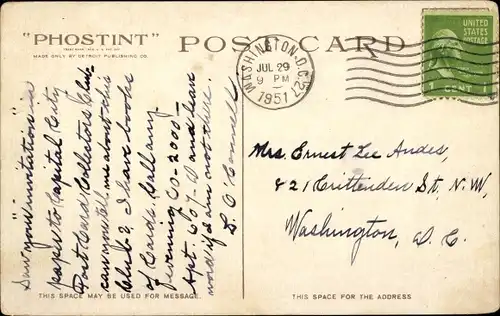 "PHOSTINT"
MADE ONLY BY DETROIT PUBLISHING CO.
POST CARD
WASHINGTON, D.C.
JUL 29
9 PM
1951
UNITED
STATES
POSTAGE
1
CENT
Saw your "invitation" in
paper to Capital City
Post Card Collectors Club -
can you tell me about this
Club? I have books
of Cards. Call any
evening CO-2000 -
Apt. 607- and leave
word if I am not there.
L. O'Connell
Mrs. Ernest Lee Andes,
821 Crittenden St, N.W,
Washington, D.C.
THIS SPACE MAY BE USED FOR MESSAGE.
THIS SPACE FOR THE ADDRESS